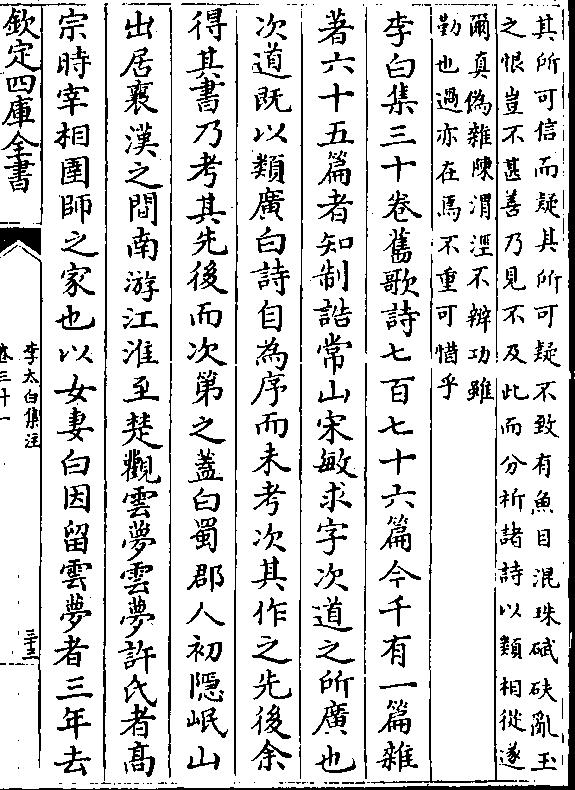 其所可信而疑其所可疑不致有魚目混珠碔砆亂玉
之恨豈不甚善乃見不及此而分析諸詩以類相從遂
爾真偽雜陳渭涇不辨功雖
勤也過亦在焉不重可惜乎
李白集三十卷舊歌詩七百七十六篇今千有一篇雜
著六十五篇者知制誥常山宋敏求字次道之所廣也
次道既以類廣白詩自為序而未考次其作之先後余
得其書乃考其先後而次第之蓋白蜀郡人初隠岷山
出居襄漢之間南游江淮至楚觀雲夢雲夢許氏者髙
宗時宰相圉師之家也以女妻白因留雲夢者三年去
欽定四庫全書
李太白集注
卷三十一
三十三